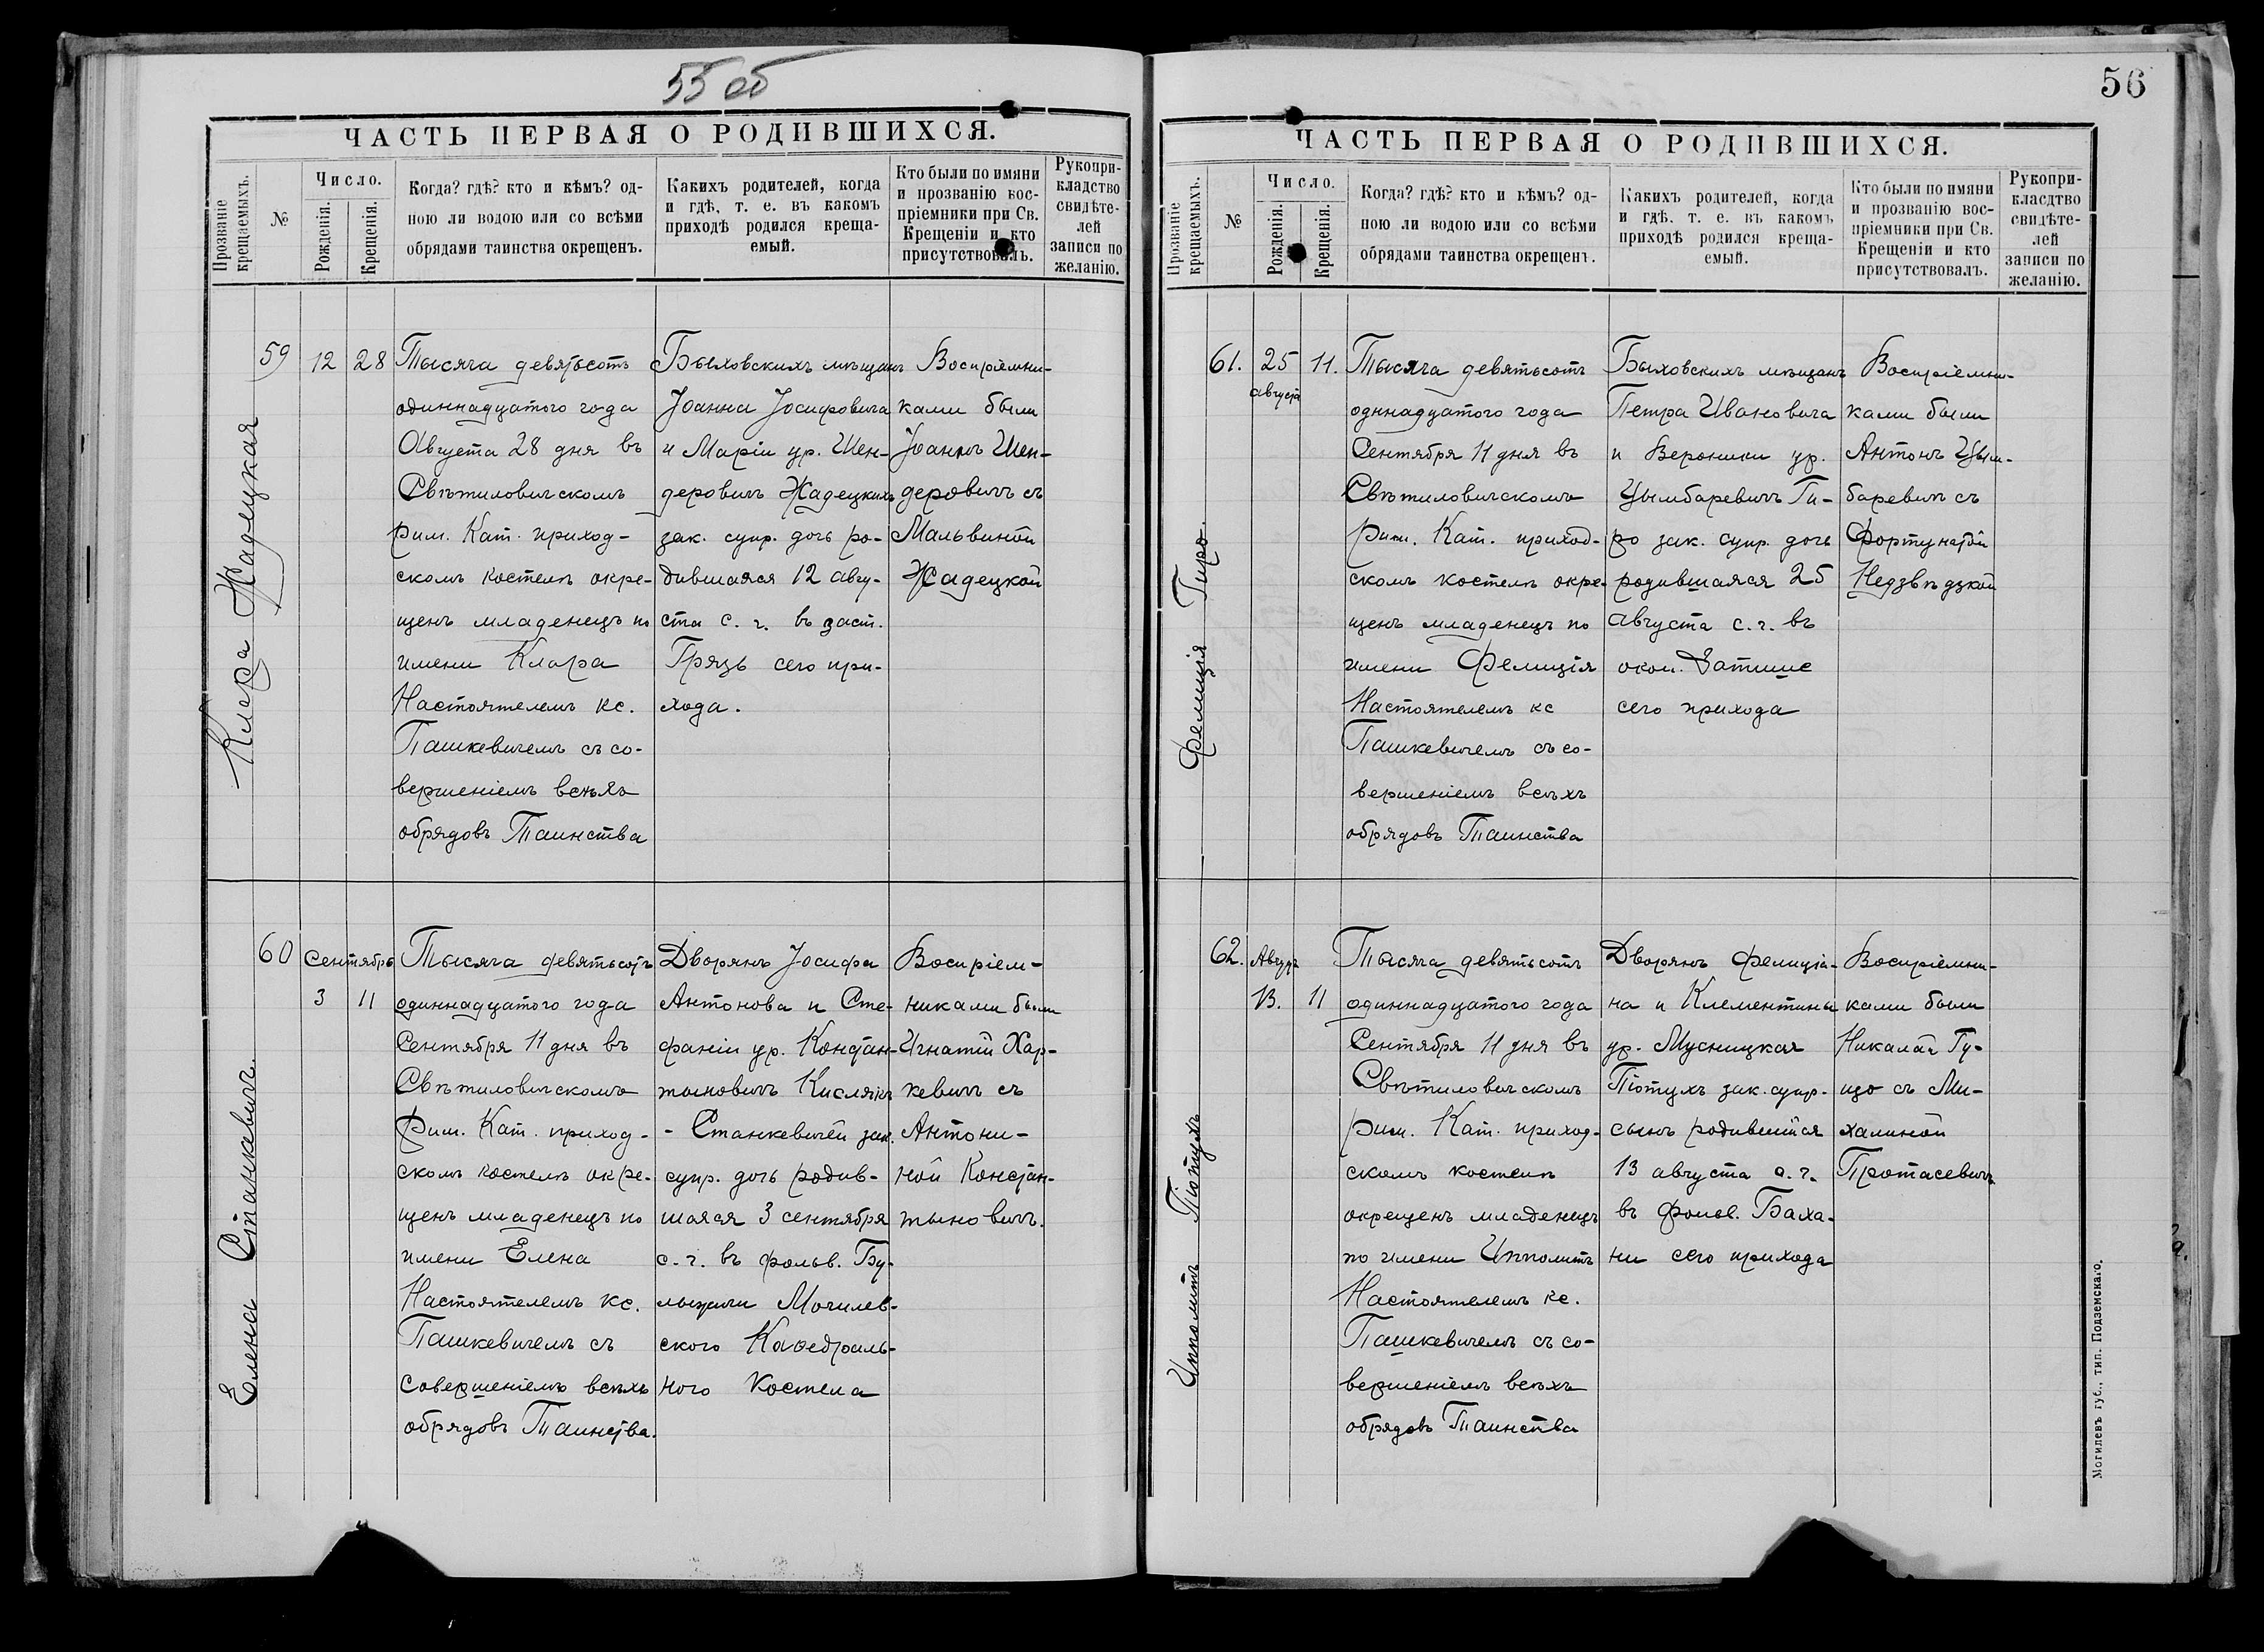 55 об
ЧАСТЬ ПЕРВАЯ О РОДИВШИХСЯ.
Прозваніе крещаемыхъ.
№
Число.
Рожденія.
Крещенія.
Когда? гдѣ? кто и кѣмъ? од-
ною ли водою или со всѣми
обрядами таинства окрещенъ.
Какихъ родителей, когда
и гдѣ, т. е. въ какомъ
приходѣ родился креща-
емый.
Кто были по имяни
и прозванію вос-
пріемники при Св.
Крещеніи и кто
присутствовалъ.
Рукопри-
кладство
свидѣте-
лей
записи по
желанію.
Клара Жадецкая
59
12
28
Тысяча девятьсотъ
одиннадцатого года
Августа 28 дня въ
Свѣтиловичскомъ
Рим. Кат. приход-
скомъ костелѣ окре-
щенъ младенецъ по
имени Клара
Настоятелемъ кс.
Пашкевичемъ съ со-
вершеніемъ всѣхъ
обрядовъ Таинства
Быховскихъ мѣщанъ
Іоанна Іосифовича
и Маріи ур. Шен-
деровичъ Жадецкихъ
зак. супр. дочь ро-
дившаяся 12 авгу-
ста с. г. въ заст.
Грязь сего при-
хода.
Воспріемни-
ками были
Іоаннъ Шен-
деровичъ съ
Мальвиной
Жадецкой
Елена Станкевичъ.
60
Сентябрь
3
11
Тысяча девятьсотъ
одиннадцатого года
Сентября 11 дня въ
Свѣтиловичскомъ
Рим. Кат. приход-
скомъ костелѣ окре-
щенъ младенецъ по
имени Елена
Настоятелемъ кс.
Пашкевичемъ съ
совершеніемъ всѣхъ
обрядовъ Таинства.
Дворянъ Іосифа
Антонова и Сте-
фаніи ур. Констан-
тыновичъ Кислякъ
- Станкевичей зак.
супр. дочь родив-
шаяся 3 сентября
с. г. въ фольв. Бу-
Могилев-
ского Каѳедраль-
ного Костела
Воспріем-
никами были
Игнатій Хар-
кевичъ съ
Антони-
ной Констан-
тыновичъ.
56
ЧАСТЬ ПЕРВАЯ О РОДИВШИХСЯ.
Прозваніе крещаемыхъ.
№
Число.
Рожденія.
Крещенія.
Когда? гдѣ? кто и кѣмъ? од-
ною ли водою или со всѣми
обрядами таинства окрещенъ.
Какихъ родителей, когда
и гдѣ. т. е. въ какомъ
приходѣ родился креща-
емый.
Кто были по имяни
и прозванію вос-
пріемники при Св.
Крещеніи и кто
присутствовалъ.
Рукопри-
кладство
свидѣте-
лей
записи по
желанію.
Фелиція Гиро.
61.
25
августа
11.
Тысяча девятьсотъ
одннадцатого года
Сентября 11 дня въ
Свѣтиловичскомъ
Рим. Кат. приход-
скомъ костелѣ окре-
щенъ младенецъ по
имени Фелиція
Настоятелемъ кс
Пашкевичемъ съ со-
вершеніемъ всѣхъ
обрядовъ Таинства
Быховскихъ мѣщанъ
Петра Ивановича
и Вероники ур.
Цымбаревичъ Ги-
ро зак. супр. дочь
родившаяся 25
августа с. г. въ
окол. Затише
сего прихода
Воспріемни-
ками были
Антонъ Цым-
баревичъ съ
Фортунатой
Недзвѣдзкой
Ипполитъ Піотухъ
62.
Августъ
13.
11
Тысяча девятьсотъ
одиннадцатого года
Сентября 11 дня въ
Свѣтиловичскомъ
рим. Кат. приход-
скомъ костелѣ
окрещенъ младенецъ
по имени Ипполитъ
Настоятелемъ кс.
Пашкевичемъ съ со-
вершеніемъ всѣхъ
обрядовъ Таинства
Дворянъ Фелиціа-
на и Клементины
ур. Мусницкая
Піотухъ зак. супр.
сынъ родившійся
13 августа с. г.
въ фольв. Баха-
ни сего прихода
Воспріемни-
ками были
Никалай Гу-
цо съ Ми-
халиной
Протасевичъ
Могилевъ губ., тип. Подземскаго.